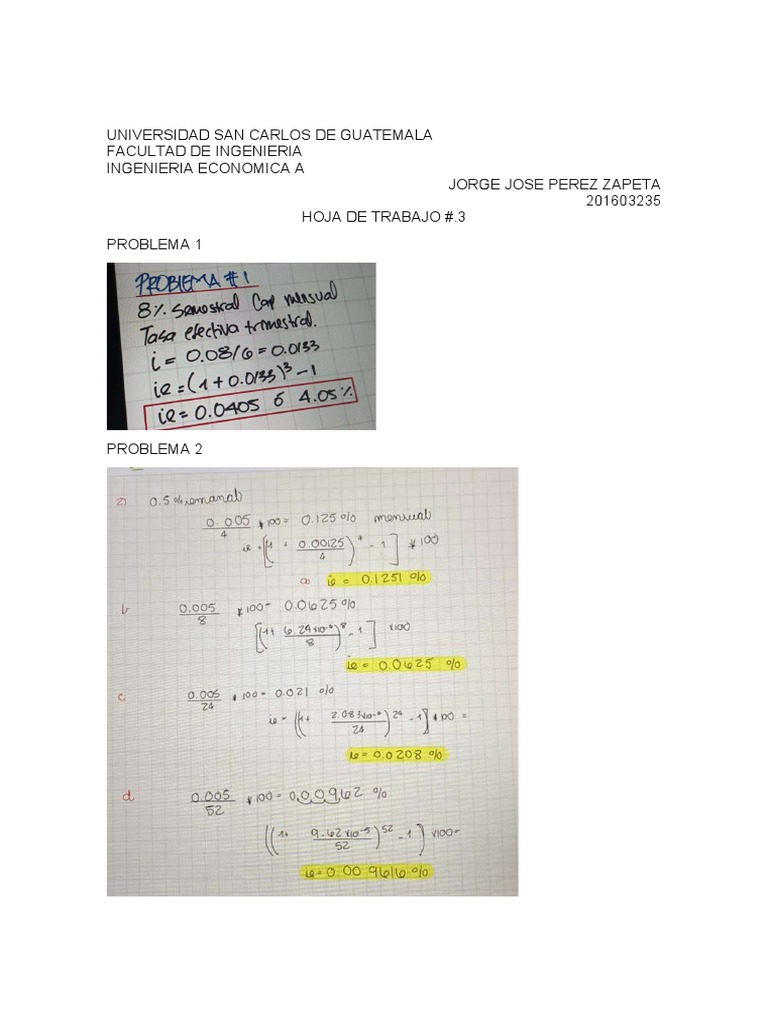 UNIVERSIDAD SAN CARLOS DE GUATEMALA
FACULTAD DE INGENIERIA
INGENIERIA ECONOMICA A
JORGE JOSE PEREZ ZAPETA
201603235
HOJA DE TRABAJO #.3
PROBLEMA 1
PROBLEMA #1
8% semestral Cap mensual
Tasa efectiva trimestral.
i = 0.08/6 = 0.0133
ie = (1 + 0.0133)³ - 1
ie = 0.0405 ó 4.05%
PROBLEMA 2
a) 0.5% semanal
0.005/4 * 100 = 0.125 % mensual
ie = [(1 + 0.00125/4)⁴ - 1] * 100
a) ie = 0.1251 %
b 0.005/8 * 100 = 0.0625 %
[(1 + 6.24x10⁻⁴/8)⁸ - 1] x100
ie = 0.0625 %
c 0.005/24 * 100 = 0.021 %
ie = ((1 + 2.083x10⁻⁴/24)²⁴ - 1] * 100 =
ie = 0.0208 %
d 0.005/52 * 100 = 0.00962 %
((1 + 9.62x10⁻⁵/52)⁵² - 1) x100 =
ie = 0.009616 %